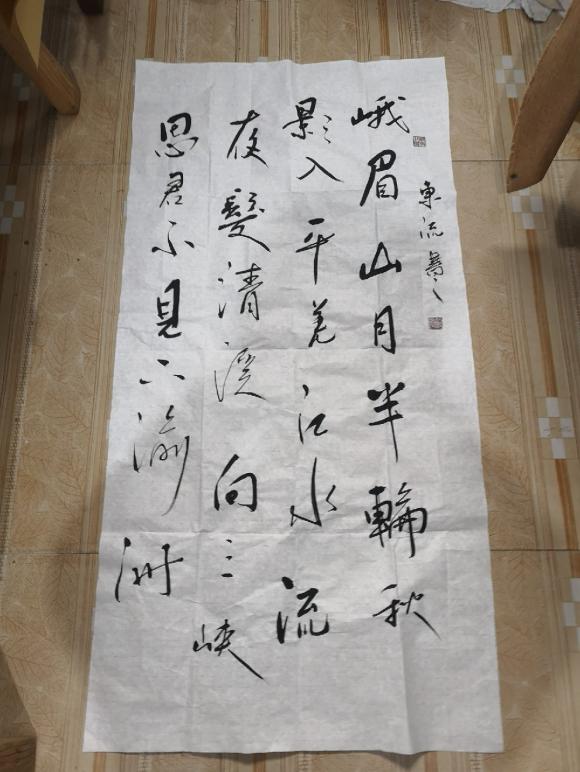 東流
峨眉山月半輪秋
影入平羌江水流
夜髮清溪向三峽
思君不見下渝洲